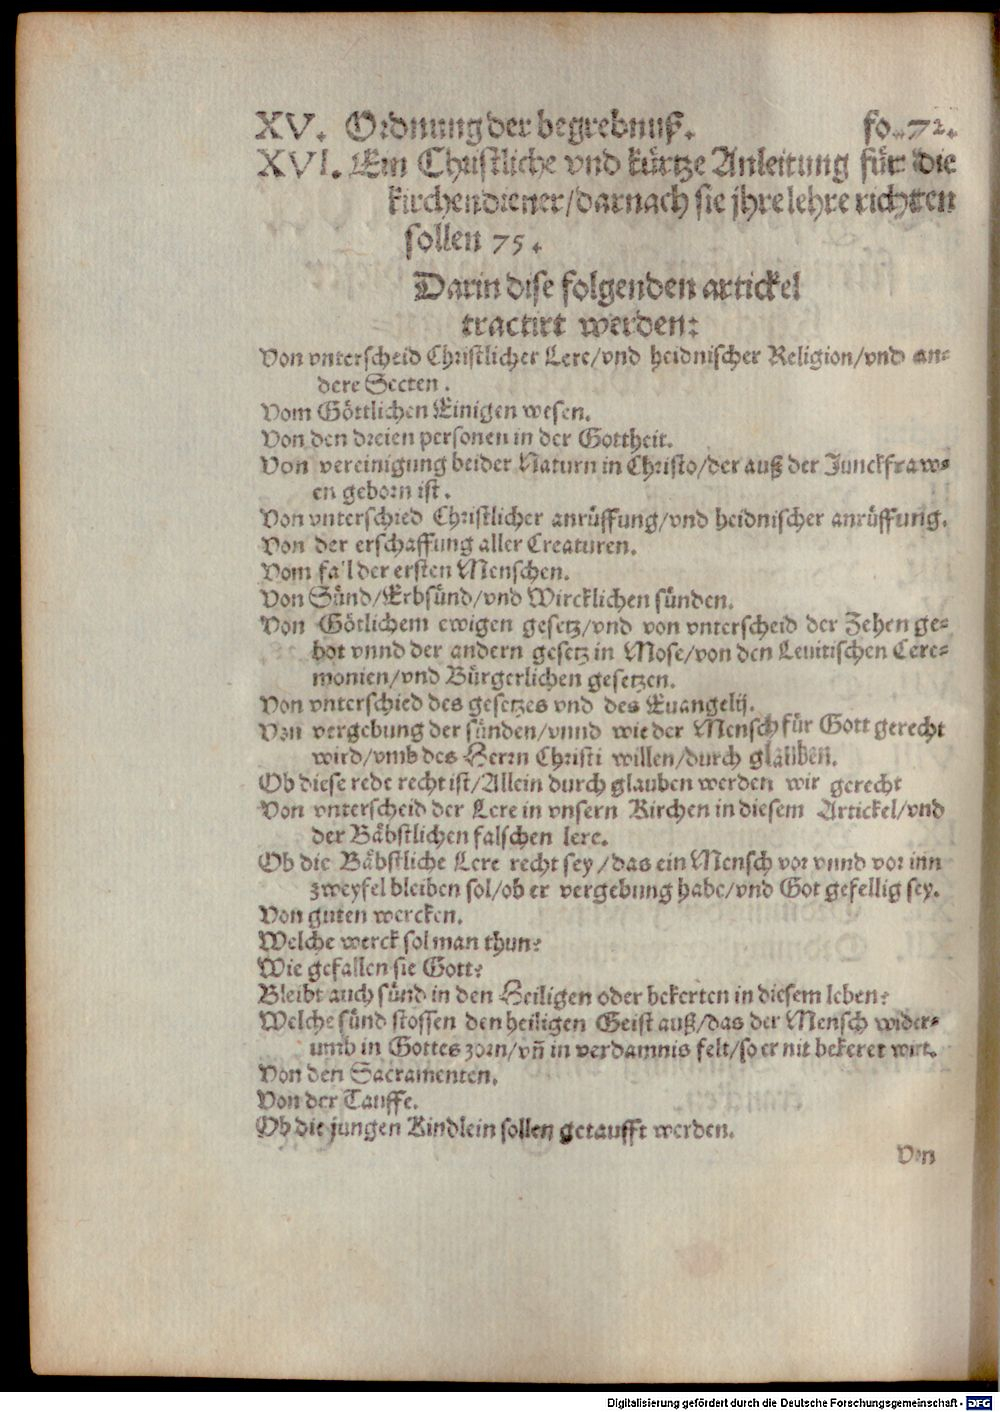 XV. Ordnung der begrebnuß. fo. 72.
XVI. Ein Christliche vnd kürtze Anleitung für die
kirchendiener/darnach sie jhre lehre richten
sollen 75.
Darin dise folgenden artickel
tractirt werden:
Von vnterscheid Christlicher Lere/vnd heidnischer Religion/vnd an-
dere Secten.
Vom Göttlichen Einigen wesen.
Von den dreien personen in der Gottheit.
Von vereinigung beider Naturn in Christo/der auß der Junckfraw-
en geborn ist.
Von vnterschied Christlicher anrüffung/vnd heidnischer anrüffung.
Von der erschaffung aller Creaturen.
Vom fal der ersten Menschen.
Von Sünd/Erbsünd/vnd Wircklichen sünden.
Von Götlichem ewigen gesetz/vnd von vnterscheid der Zehen ge-
bot vnnd der andern gesetz in Mose/von den Leuitischen Cere-
monien/vnd Bürgerlichen gesetzen.
Von vnterschied des gesetzes vnd des Euangelij.
Von vergebung der sünden/vnnd wie der Mensch für Gott gerecht
wird/vmb des Herrn Christi willen/durch glauben.
Ob diese rede recht ist/Allein durch glauben werden wir gerecht
Von vnterscheid der Lere in vnsern Kirchen in diesem Artickel/vnd
der Bäbstlichen falschen lere.
Ob die Bäbstliche Lere recht sey/das ein Mensch vor vnnd vor inn
zweyfel bleiben sol/ob er vergebung habe/vnd Got gefellig sey.
Von guten wercken.
Welche werck sol man thun?
Wie gefallen sie Gott?
Bleibt auch sünd in den Heiligen oder bekerten in diesem leben?
Welche sünd stossen den heiligen Geist auß/das der Mensch wider-
umb in Gottes zorn/vñ in verdamnis felt/so er nit bekeret wirt.
Von den Sacramenten.
Von der Tauffe.
Ob die jungen Kindlein sollen getaufft werden.
Von
Digitalisierung gefördert durch die Deutsche Forschungsgemeinschaft - DFG